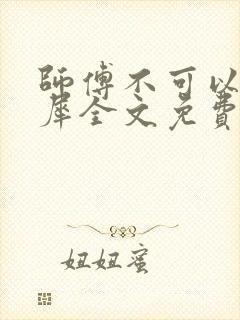 師傅不可以
犀全文免費
妞妞蜜